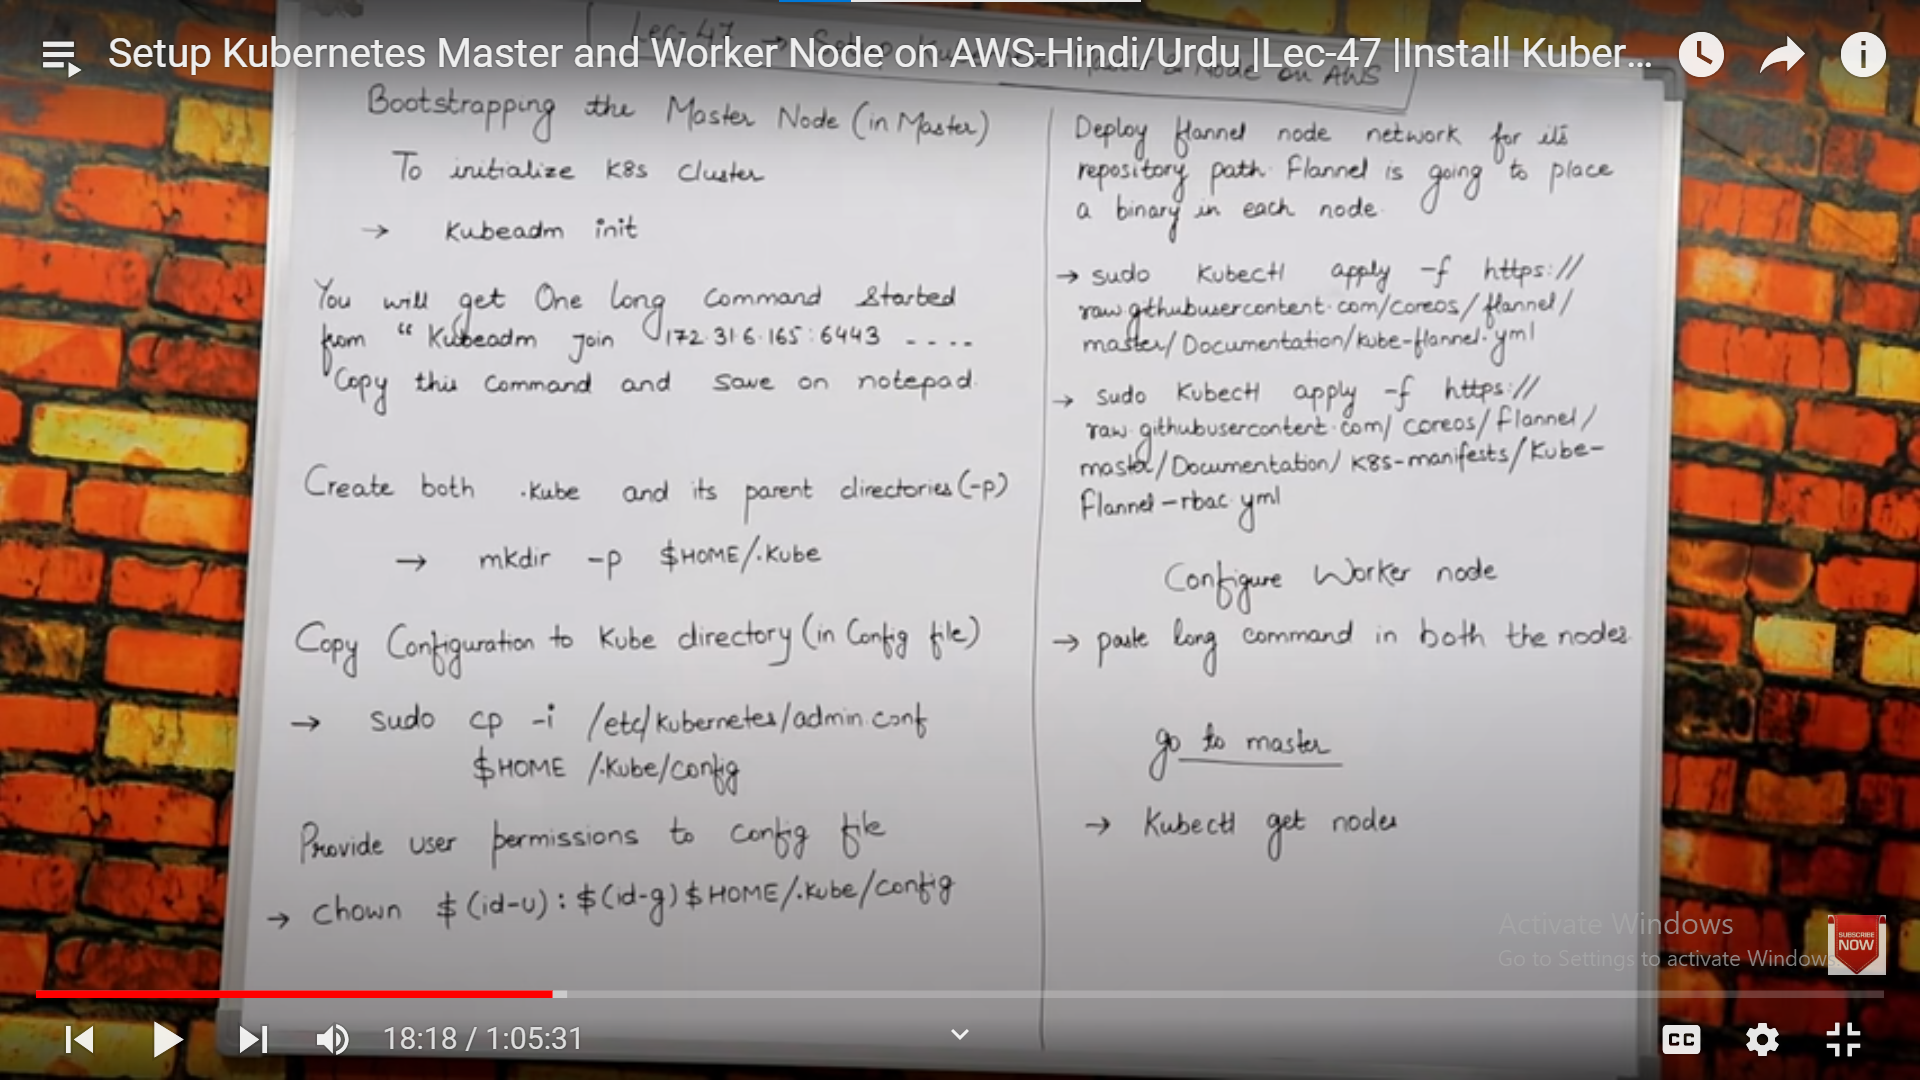 Setup Kubernetes Master and Worker Node on AWS-Hindi/Urdu |Lec-47 |Install Kuber...
Lec-47 → Node on AWS
Bootstrapping the Master Node (in Master)
To initialize K8s Cluster
→ Kubeadm init
You will get One long Command Started
from "Kubeadm join 172.31.6.165:6443 ----
"Copy this Command and Save on notepad.
Create both .Kube and its parent directories (-p)
→ mkdir -p $HOME/.Kube
Copy Configuration to Kube directory (in Config file)
→ Sudo cp -i /etc/kubernetes/admin.conf
$HOME /.Kube/config
Provide user permissions to Config file
→ Chown $(id-u):$(id-g) $HOME/.Kube/config
Deploy flannel node network for its
repository path. Flannel is going to place
a binary in each node.
→ sudo Kubectl apply -f https://
raw.githubusercontent.com/coreos/flannel/
master/Documentation/kube-flannel.yml
→ sudo Kubectl apply -f https://
raw.githubusercontent.com/coreos/flannel/
master/Documentation/K8s-manifests/Kube-
flannel-rbac.yml
Configure Worker node
→ paste long command in both the nodes.
go to master
→ Kubectl get nodes
Activate Windows
Go to Settings to activate Windows.
SUBSCRIBE
NOW
18:18 / 1:05:31
CC